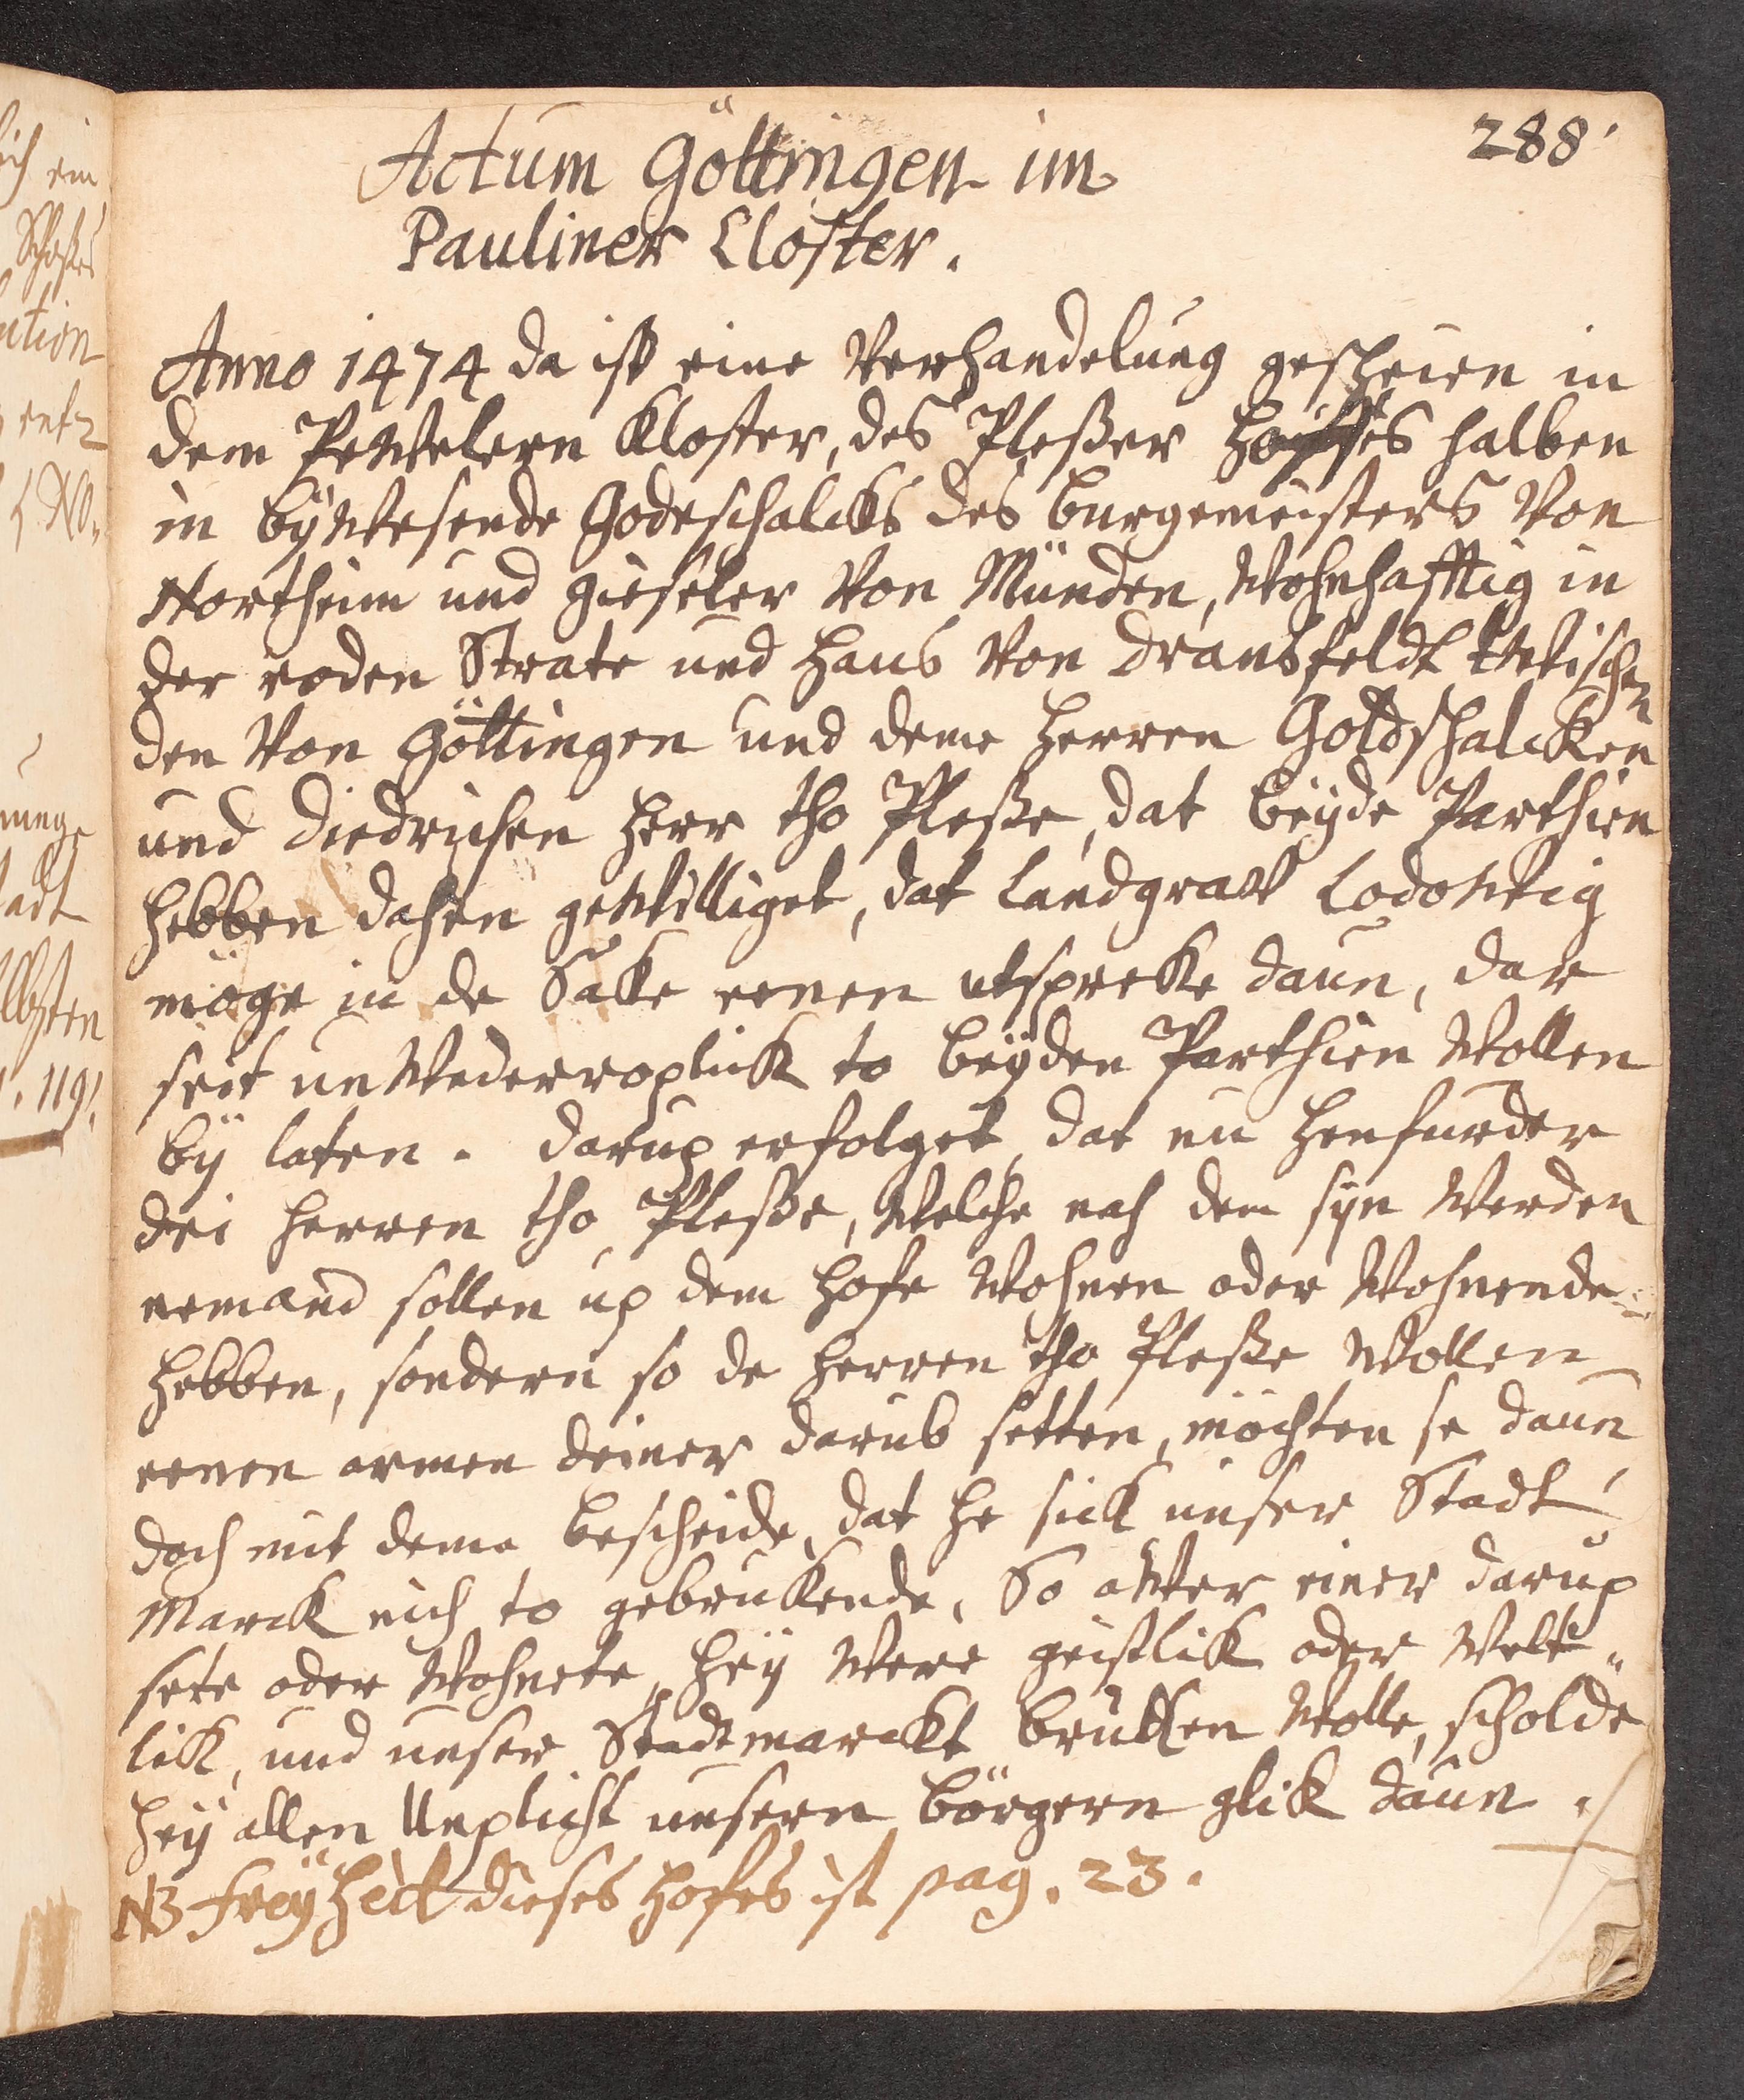 288
Actum Göttingen im
Pauliner Closter.
Anno 1474 da ist eine Verhandelung gescheien in
dem Pewelern Kloster, des Pleßer Hoiffes halben
in bÿwesende Godeschalcks des Burgemeisters von
Northeim und Gieseler von Münden, wohnhafftig in
der roden Strate und Hans von Dransfeldt twischen
den von Göttingen und deme Herren Gottschalcken
und Diedrichen Herr tho Pleße, dat beÿde Parthien
hebben dahen gewilliget, dat Landgraw Lodowig
möge in de Sake eenen utspreke daun, dar
seit unwederroplick to beÿden Parthien wollen
bÿ laten. Darup erfolget, dat nu henfurder
dei Herren tho Pleße, welche nah dem sÿn werden
nemand sollen up dem Hofe wohnen oder wohnende
hebben, sondern so de Herren tho Pleße wollen
eenen armen deiner darub setten, möchten se daun
doch mit deme bescheide, dat he sick unser Stadt
Marck nich to gebrukende, So awer einer darup
sete oder wohnete, heÿ were geistlick oder welt-
lick, und unser Stadtmarckt bruken wolle, scholde
heÿ allen Unplicht unsern börgern glick daun.
NB FreÿHeit dieses Hofes ist pag. 23.
ich ein
ution
entz
nunge
tadt
lbsten
. 119.